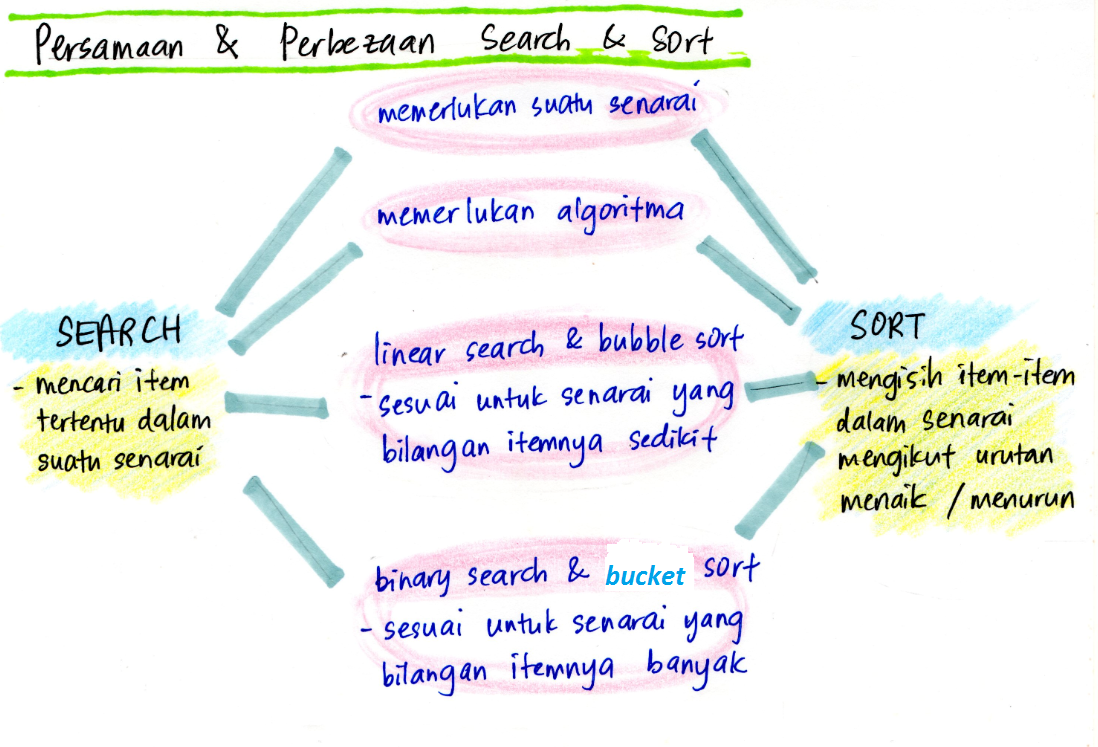 Persamaan & Perbezaan Search & Sort
memerlukan suatu senarai
memerlukan algoritma
SEARCH
- mencari item
tertentu dalam
suatu senarai
linear search & bubble sort
- sesuai untuk senarai yang
bilangan itemnya sedikit
binary search & bucket sort
- sesuai untuk senarai yang
bilangan itemnya banyak
SORT
- mengisih item-item
dalam senarai
mengikut urutan
menaik / menurun